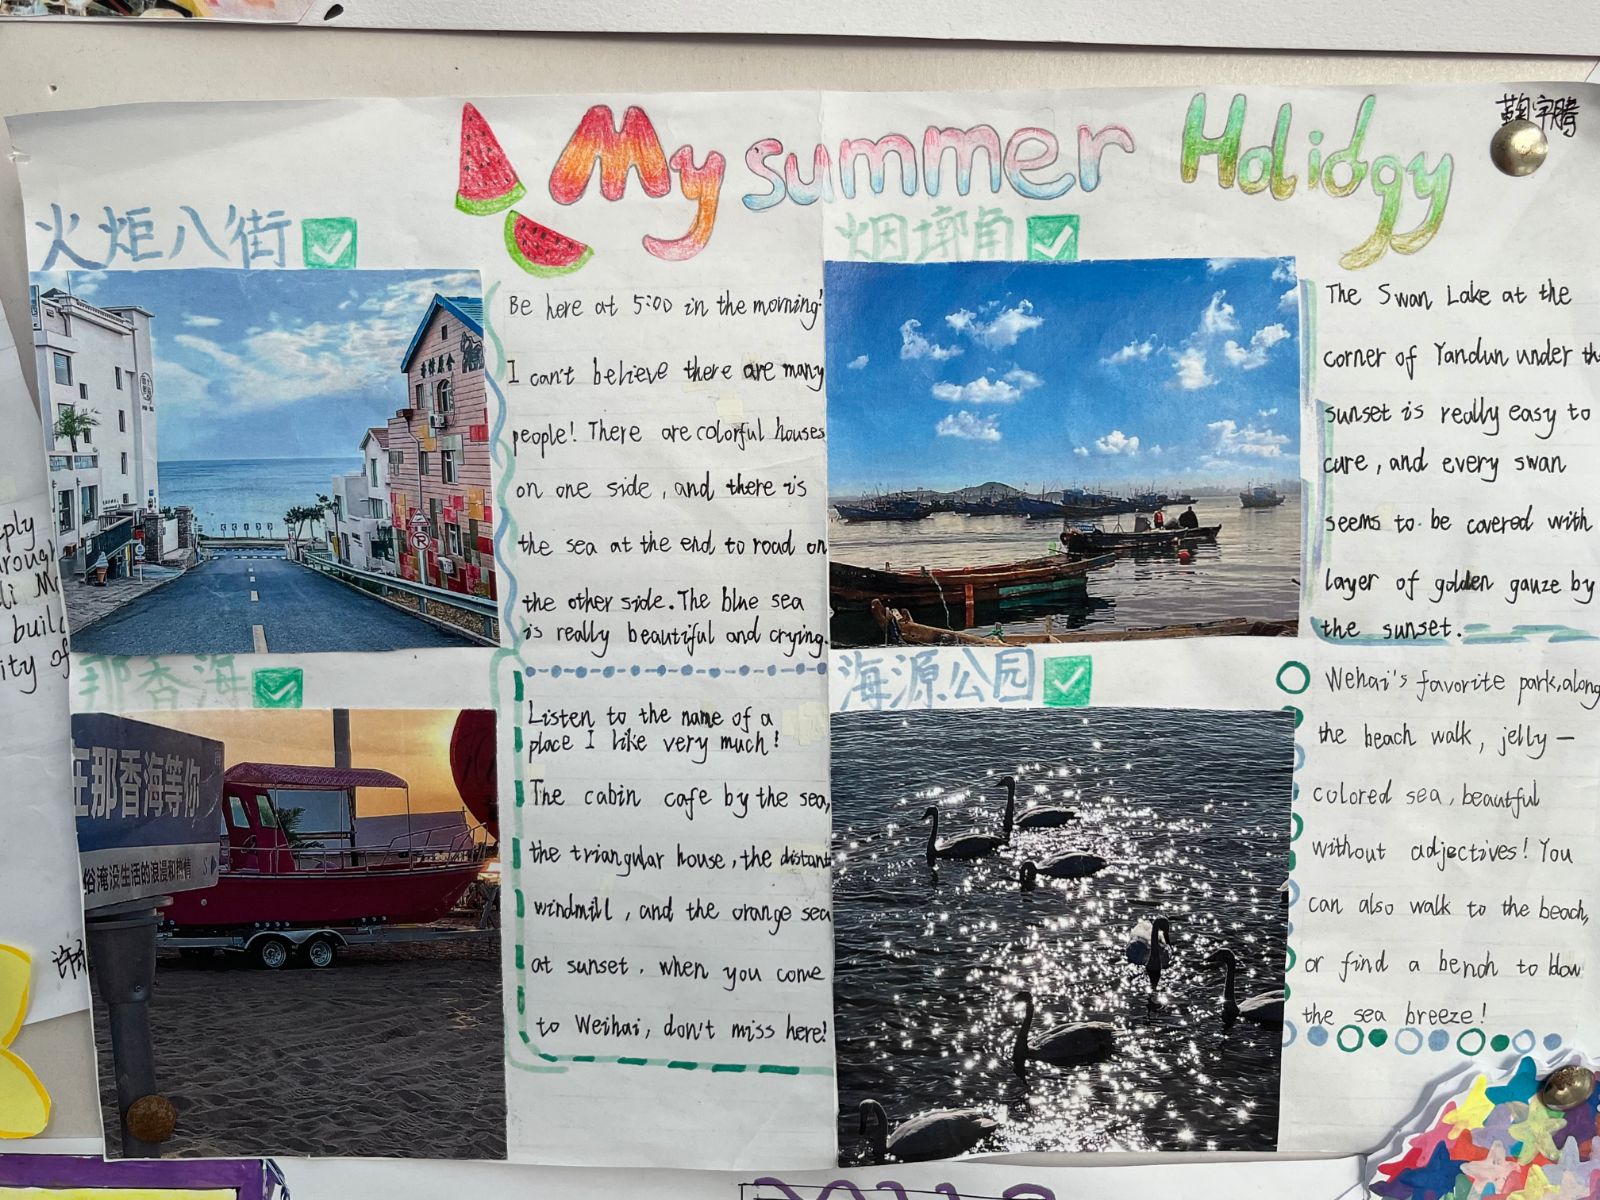 My summer Holiday
鞠宇腾
火炬八街
Be here at 5:00 in the morning!
I can't believe there are many
people! There are colorful houses
on one side, and there is
the sea at the end to road on
the other side. The blue sea
is really beautiful and crying.
烟墩角
The Swan Lake at the
corner of Yandun under th
sunset is really easy to
cure, and every swan
seems to be covered with
layer of golden gauze by
the sunset.
那香海
在那香海等你
俗淹没生活的浪漫和热情 S
Listen to the name of a
place I like very much!
The cabin cafe by the sea,
the triangular house, the distant
windmill, and the orange sea
at sunset. when you come
to Weihai, don't miss here!
海源公园
Wehai's favorite park, along
the beach walk, jelly-
colored sea, beautful
without adjectives! You
can also walk to the beach,
or find a bench to blow
the sea breeze!
ply
roug
li M
buil
ity of